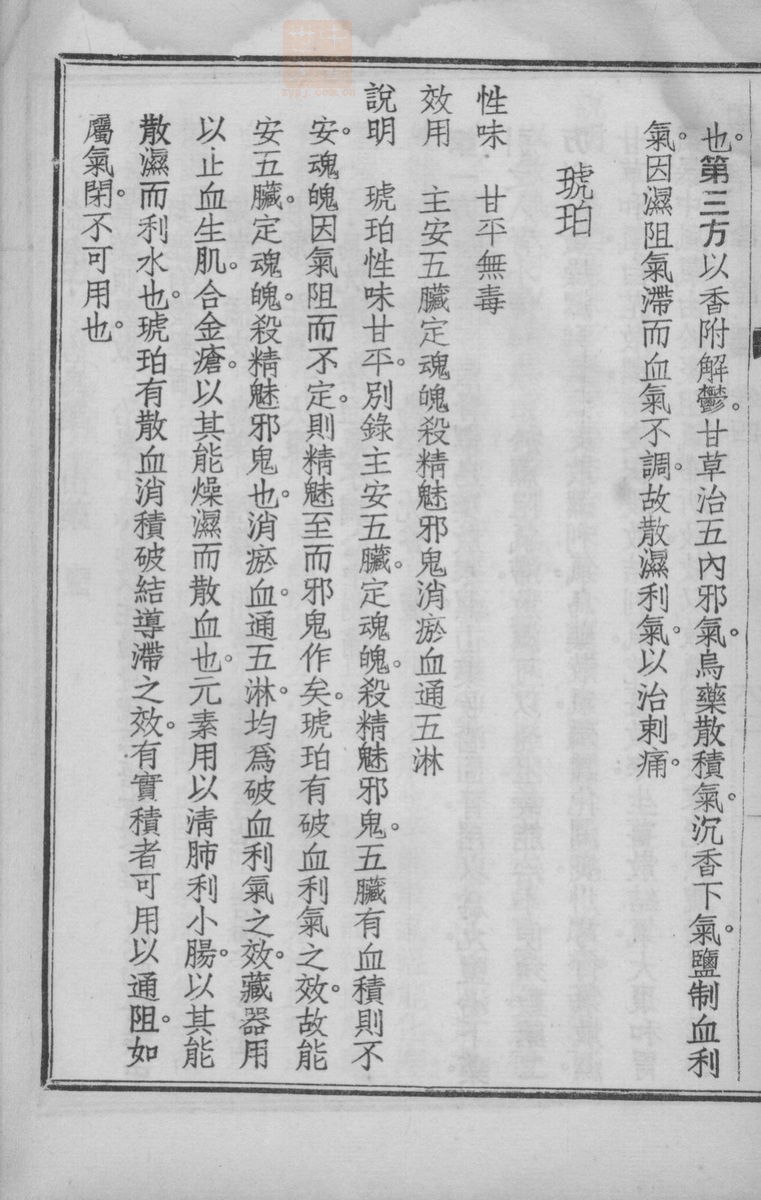 也。第三方以香附解鬱。甘草治五內邪氣。烏藥散積氣。沉香下氣。鹽制血利
氣。因濕阻氣滯而血氣不調。故散濕利氣。以治刺痛。
琥珀
性味 甘平無毒
效用 主安五臟定魂魄殺精魅邪鬼消瘀血通五淋
說明 琥珀性味甘平。別錄主安五臟。定魂魄。殺精魅邪鬼。五臟有血積則不
安。魂魄因氣阻而不定。則精魅至而邪鬼作矣。琥珀有破血利氣之效。故能
安五臟。定魂魄。殺精魅邪鬼也。消瘀血。通五淋。均爲破血利氣之效。藏器用
以止血生肌。合金瘡。以其能燥濕而散血也。元素用以淸肺利小腸。以其能
散濕而利水也。琥珀有散血消積破結導滯之效。有實積者可用以通阻。如
屬氣閉。不可用也。
zysj.com.cn